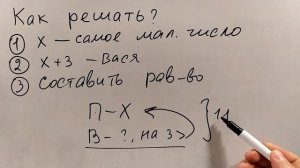 Как решать?
① х — самое мал. число
② х+3 — Вася
③ составить рав-во
П – х
В – ?, на 3 >
} 11